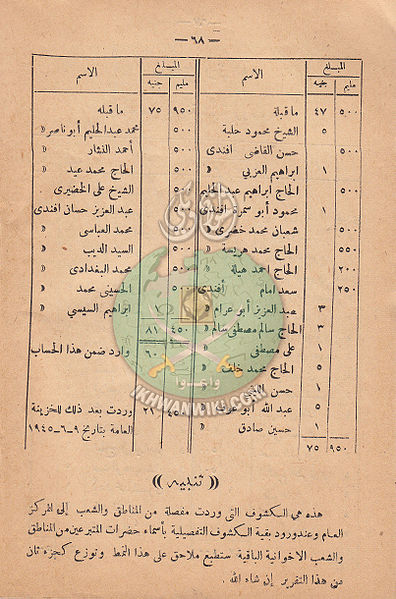 — ٦٨ —
المبلغ الاسم المبلغ الاسم
مليم جنيه مليم جنيه
٥٠٠ ٤٧ ما قبله
٥ الشيخ محمود حلبة
٥٠٠ حسن القاضى افندى
١ ابراهيم العزبي »
٥٠٠ الحاج ابراهيم عبد الحليم
١ محمود أبو سمرة افندى
٥٠٠ شعبان محمد خضرى »
٥٥٠ الحاج محمد هريسة »
٢٠٠ الحاج احمد هيلة »
٢٥٠ سعد امام افندى
٣ عبد العزيز أبو عرام »
٣ الحاج سالم مصطفى سالم »
١ على مصطفى »
٥ الحاج محمد خلف »
١ حسن
٥ عبد الله أبو
١ حسين صادق »
٩٥٠ ٧٥
٩٥٠ ٧٥ ما قبله
٥٠٠ محمد عبد الحليم أبو ناصر »
٥٠٠ أحمد النشار »
٥٠٠ الحاج محمد عيد »
٥٠٠ الشيخ على الخضيرى »
٥٠٠ عبد العزيز حسان افندى
٥٠٠ محمد العباسى »
٥٠٠ السيد الديب »
٥٠٠ محمد البغدادى »
الحسينى محمد »
ابراهيم السيسي »
٤٥٠ ٨١
٦٠ وارد ضمن هذا الحساب
٤٥٠ ٢١ وردت بعد ذلك للخزينة
العامة بتاريخ ٩-٦-١٩٤٥
(( تنبيه ))
هذه هي الكشوف التى وردت مفصلة من المناطق والشعب إلى المركز
العام وعند ورود بقية الكشوف التفصيلية بأسماء حضرات المتبرعين من المناطق
والشعب الاخوانية الباقية ستطبع ملاحق على هذا النمط وتوزع كجزء ثان
من هذا التقرير إن شاء الله .
وأعدوا
IKHWANWIKI.COM